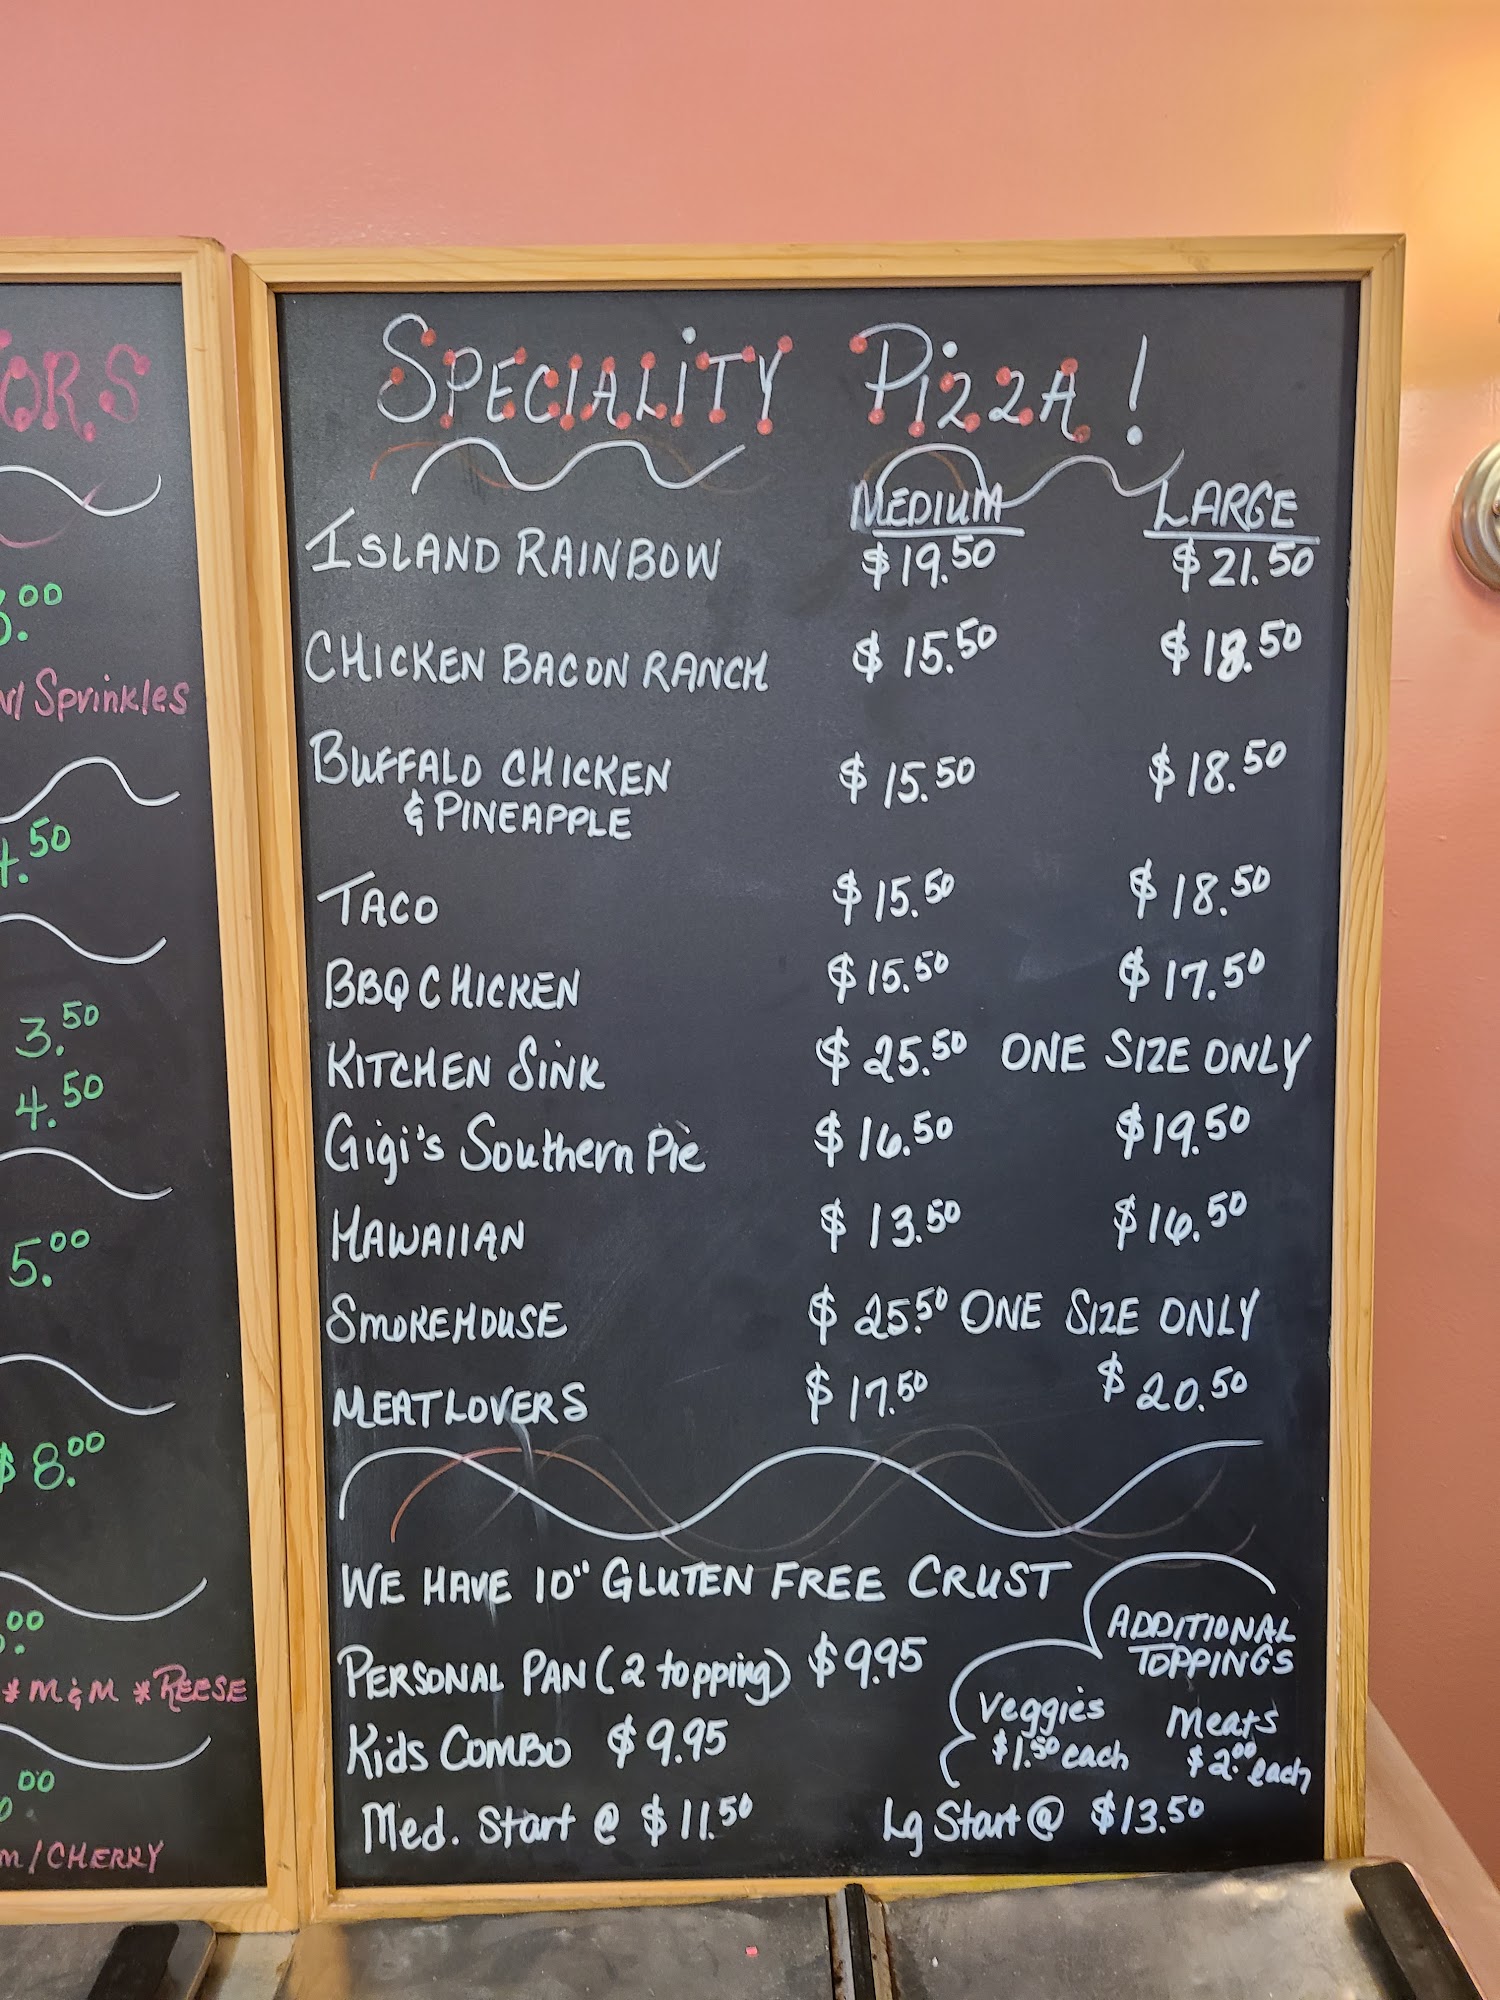 ORS
.00
w/ Sprinkles
4.50
3.50
4.50
5.00
$8.00
.00
* M&M * REESE
.00
/CHERRY
SPECIALITY PIZZA!
MEDIUM LARGE
ISLAND RAINBOW $19.50 $21.50
CHICKEN BACON RANCH $15.50 $18.50
BUFFALO CHICKEN $15.50 $18.50
& PINEAPPLE
TACO $15.50 $18.50
BBQ CHICKEN $15.50 $17.50
KITCHEN SINK $25.50 ONE SIZE ONLY
Gigi's Southern Pie $16.50 $19.50
HAWAIIAN $13.50 $16.50
SMOKEHOUSE $25.50 ONE SIZE ONLY
MEATLOVERS $17.50 $20.50
WE HAVE 10" GLUTEN FREE CRUST
PERSONAL PAN (2 topping) $9.95
Kids COMBO $9.95
Med. Start @ $11.50 Lg Start @ $13.50
ADDITIONAL
TOPPINGS
Veggies Meats
$1.50 each $2.00 each